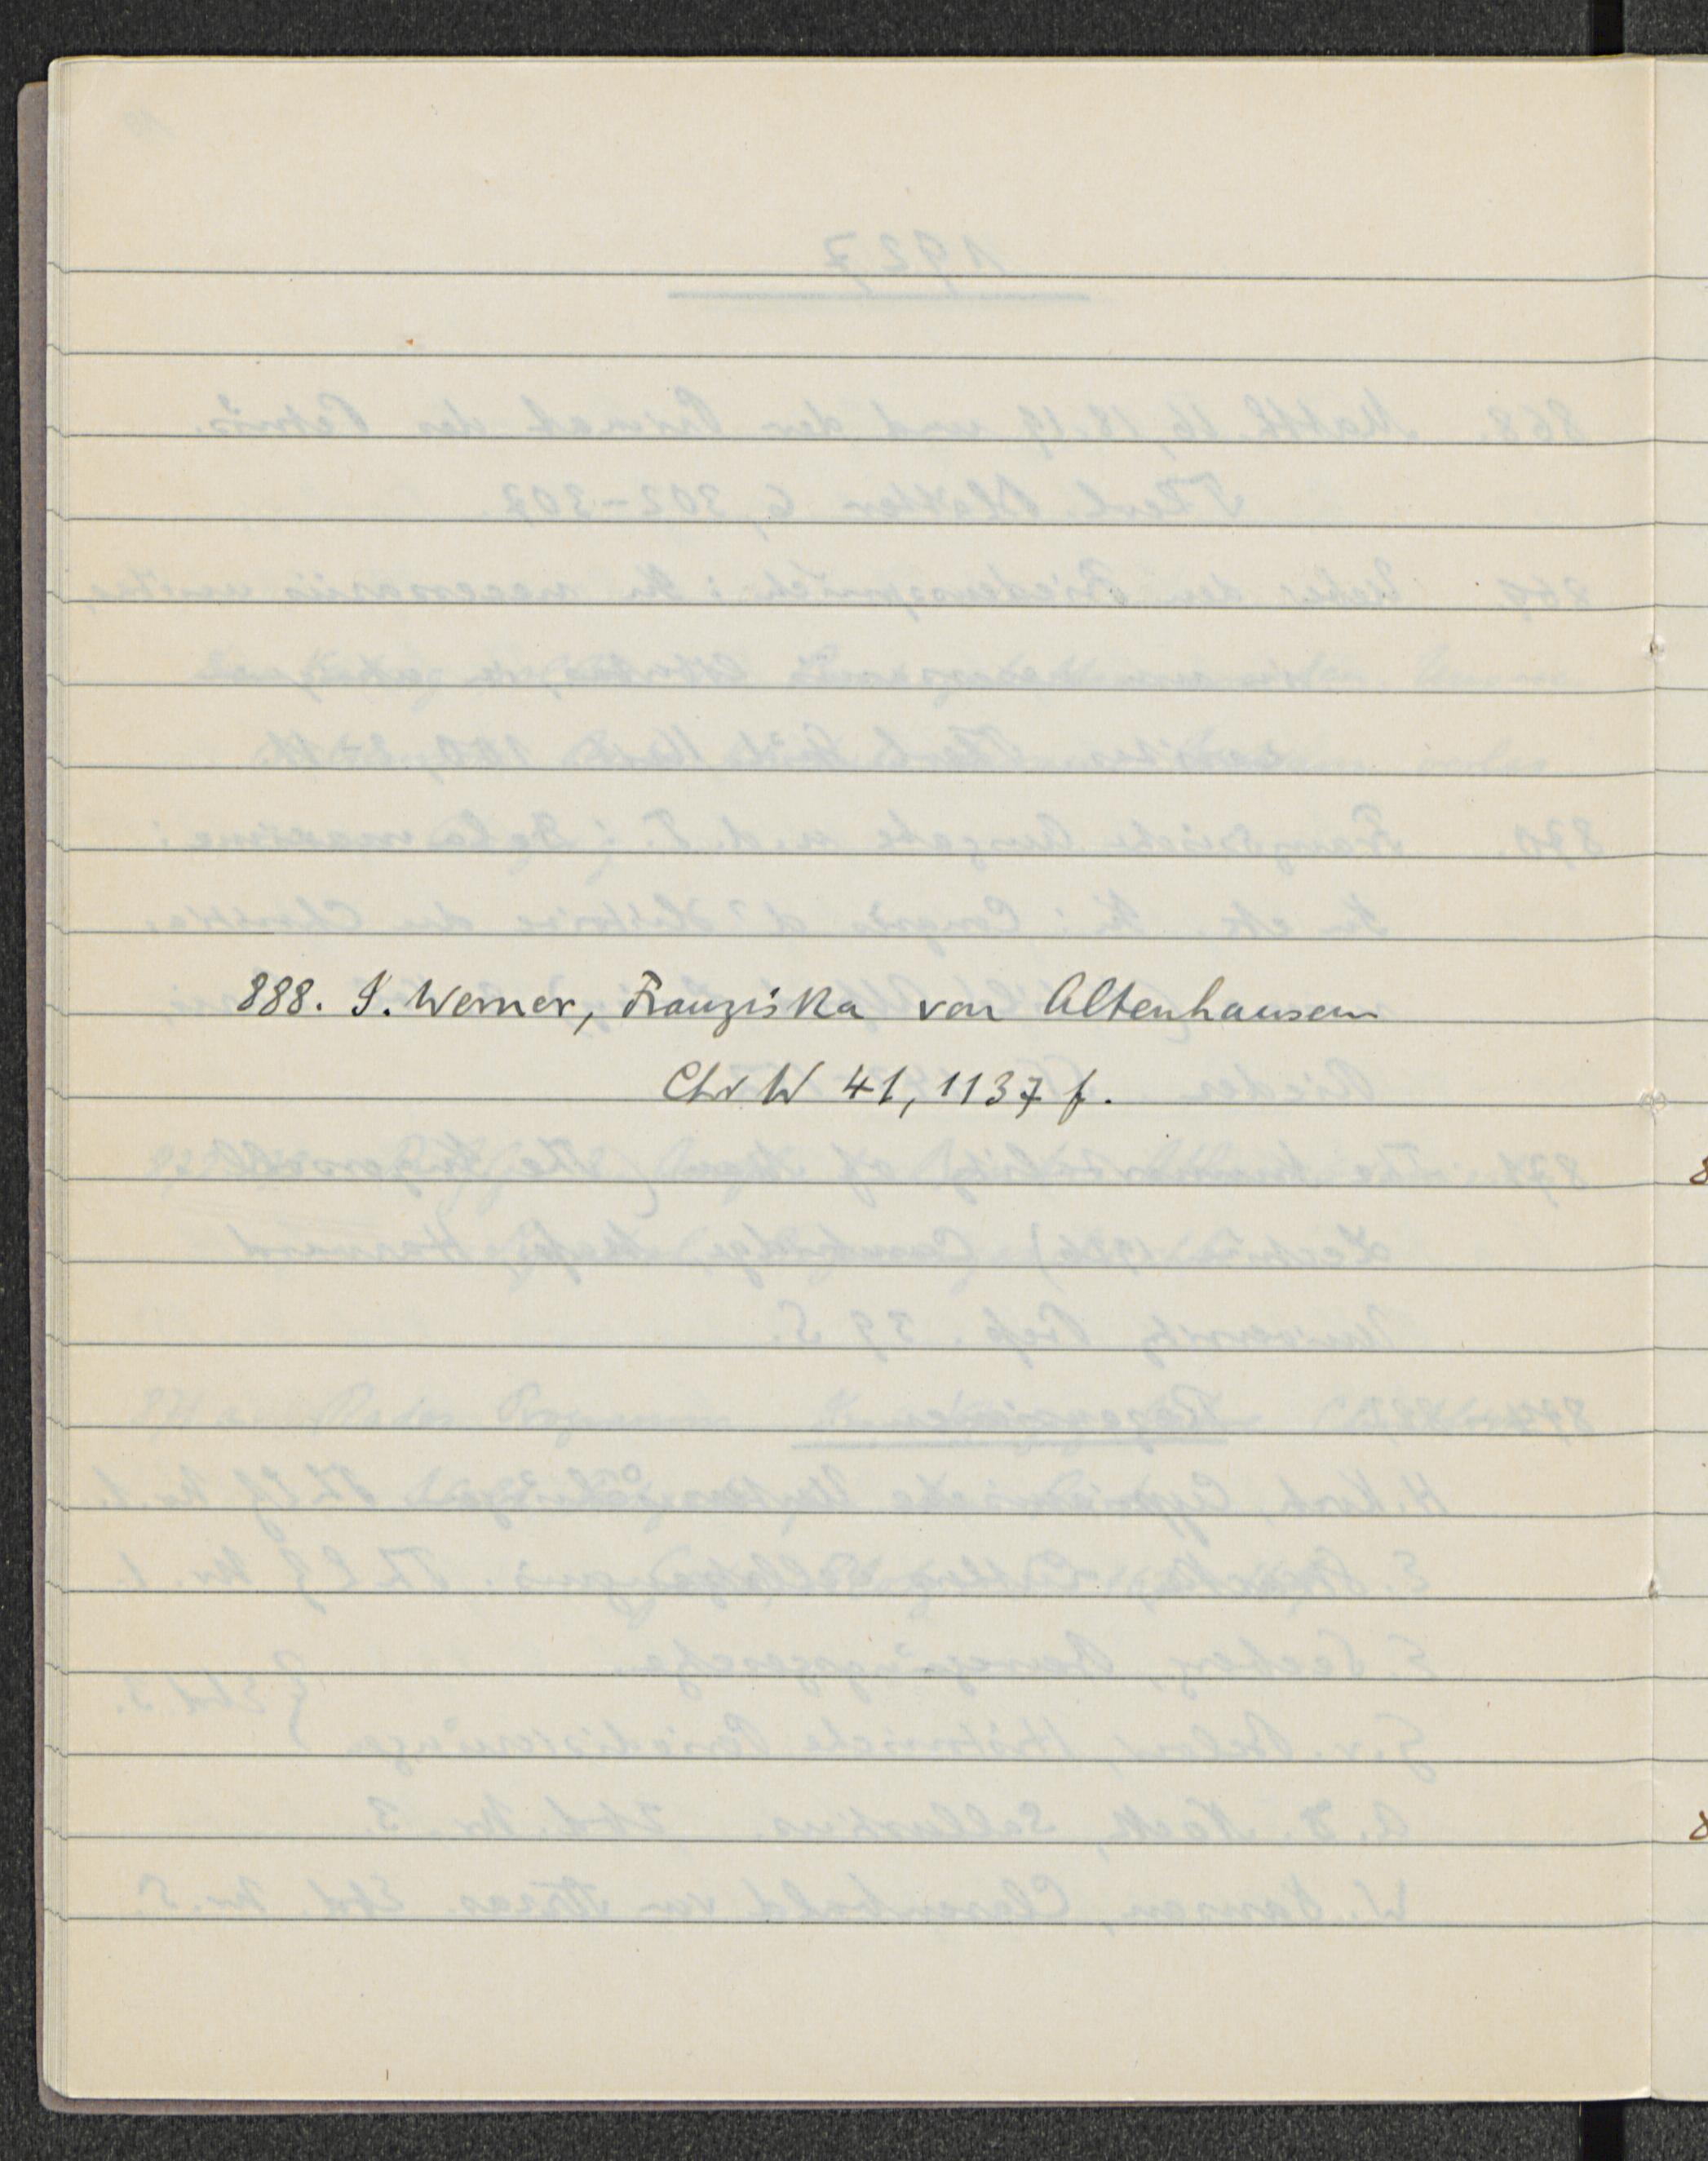 888. S. Werner, Franziska von Altenhausen
Chr W 41, 1137 f.